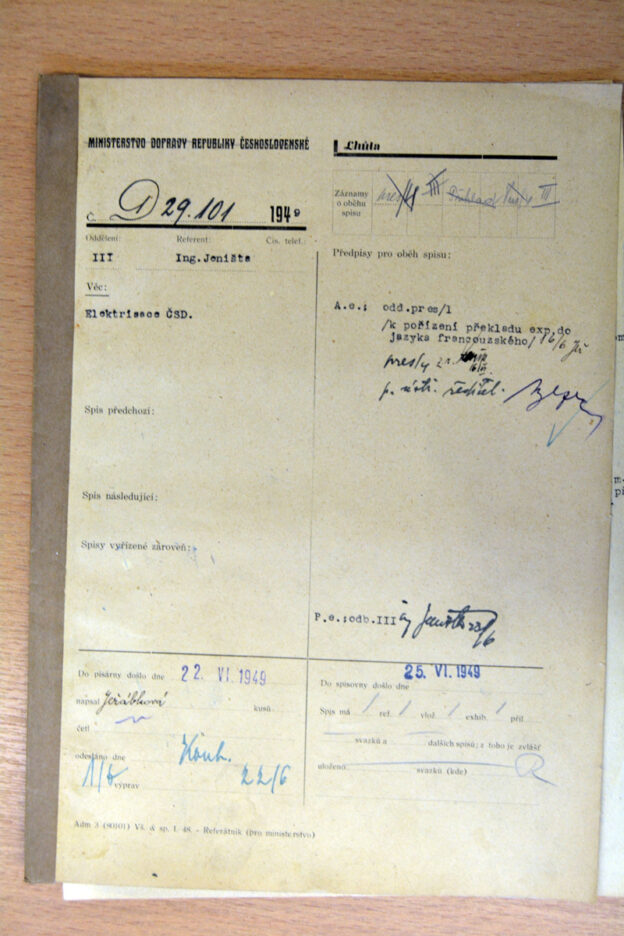 MINISTERSTVO DOPRAVY REPUBLIKY ČESKOSLOVENSKÉ
Lhůta
Záznamy o oběhu spisu
pres/1 III III
Č. D 29.101 1949
Oddělení: Referent: Čís. telef.:
III Ing.Jeništa
Předpisy pro oběh spisu:
Věc:
Elektrisace ČSD.
A.e.: odd.pres/1
/k pořízení překladu exp.do
jazyka francouzského/ 16/6
pres/4
p. ředitel.
Spis předchozí:
Spis následující:
Spisy vyřízené zároveň:
P.e.:odb.III ing Jeništa 23/6
Do písárny došlo dne 22. VI. 1949
napsal Jeřábková kusů
četl
odesláno dne Kouk. 22/6
výprav
Do spisovny došlo dne 25. VI. 1949
Spis má / ref. / vlož. / exhib. / příl.
svazků a dalších spisů; z toho je zvlášť
uloženo svazků (kde)
Adm 3 (80101) Vš. & sp. I. 48. - Referátník (pro ministerstvo)